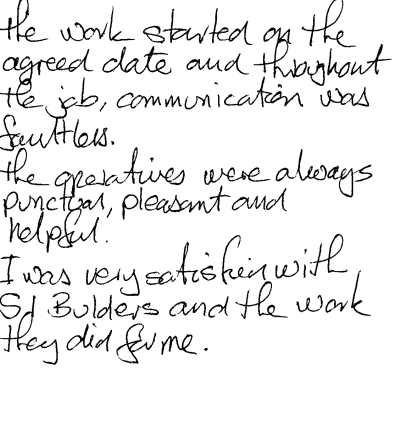 the work started on the
agreed date and throughout
the job, communication was
faultless.
the operatives were always
punctual, pleasant and
helpful.
I was very satisfied with
SJ Builders and the work
they did for me.